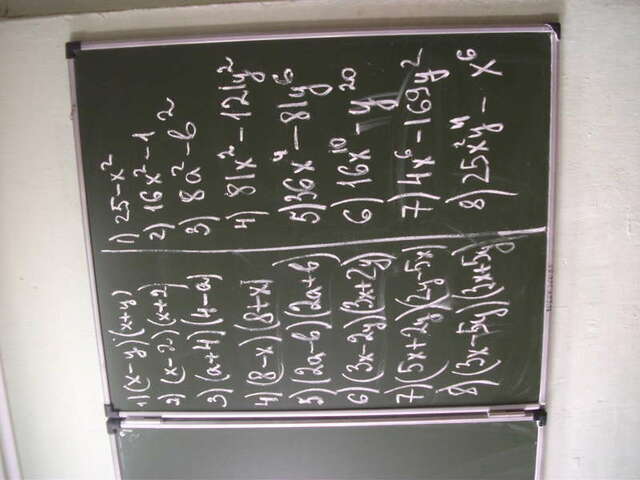 1)(x-y)(x+y)
2)(x-2)(x+2)
3)(a+4)(4-a)
4)(8-x)(8+x)
5)(2a-b)(2a+b)
6(3x-2y)(3x+2y)
7)(5x+2y)(2y-5x)
8)(3x-5y)(3x+5y)
1) 25-x²
2) 16x²-1
3) 8a²-b²
4) 81x²-121y²
5) 36x⁴-81y⁶
6) 16x¹⁰-y²⁰
7) 4x⁶-169y²
8) 25x²y⁴-x⁶